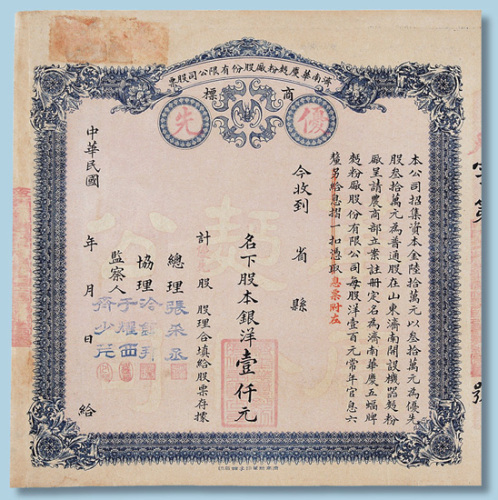 濟南華慶麪粉廠股份有限公司股票
商標
優先
本公司招集資本金陸拾萬元以叁拾萬元為優先
股叁拾萬元為普通股在山東濟南開設機器麪粉
廠呈請農商部立案註冊定名為濟南華慶五蝠牌
麪粉廠股份有限公司每股洋壹百元常年官息六
釐另給息摺一扣憑取息票附左
今收到 省 縣
名下股本銀洋壹仟元
計 股 股理合填給股票存據
總理 張采丞
協理 冷
監察人 于耀西
齊少芹
中華民國 年 月 日 給
字第
號